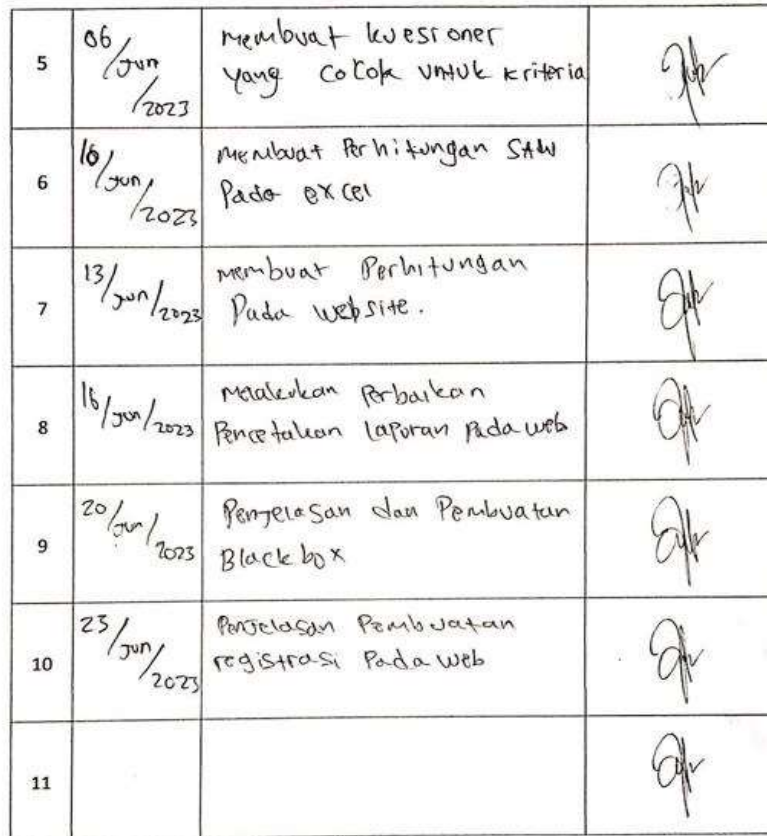 5
06/Jun/2023
Membuat kuesioner
yang Cocok untuk kriteria
6
10/Jun/2023
Membuat Perhitungan SAW
Pada excel
7
13/Jun/2023
membuat Perhitungan
Pada website.
8
16/Jun/2023
Melakukan Perbaikan
Pencetakan laporan Pada web
9
20/Jun/2023
Penjelasan dan Pembuatan
Black box
10
23/Jun/2023
Penjelasan Pembuatan
registrasi Pada web
11